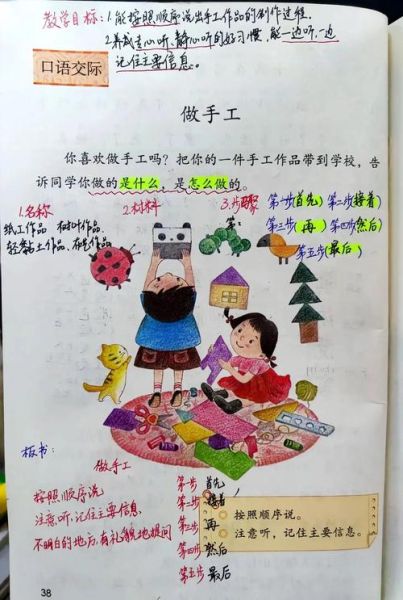 教学目标：1.能按照顺序说出手工作品的制作过程.
2.养成专心听、静心听的好习惯,能一边听,一边
记住主要信息。
口语交际
做手工
你喜欢做手工吗？把你的一件手工作品带到学校，告
诉同学你做的是什么，是怎么做的。
第一步(首先) 第二步(接着)
1.名称 2.材料 3.步骤
纸工作品 树叶作品
第三步(再) 第四步(然后)
轻黏土作品、布艺作品
第五步(最后)
板书:
做手工
按照顺序说
注意听,记住主要信息
不明白的地方,有礼貌地提问
第一步 首先
第二步 接着
第三步 再
第四步 然后
第五步 最后
按照顺序说。
注意听，记住主要信息。
38